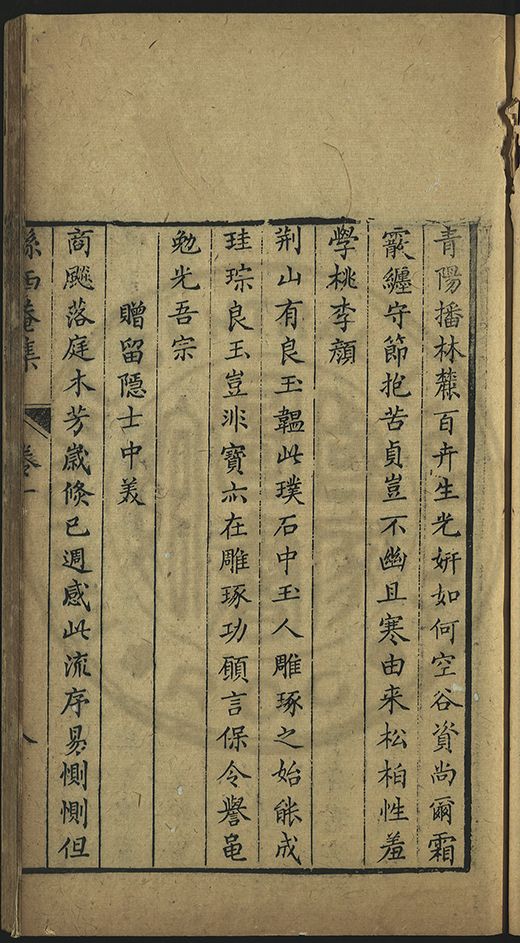 青陽播林麓百卉生光妍如何空谷資尚爾霜
霰纏守節抱苦貞豈不幽且寒由来松柏性羞
學桃李顔
荆山有良玉韞此璞石中玉人雕琢之始能成
珪琮良玉豈非寶亦在雕琢功願言保令譽黽
勉光吾宗
贈留隱士中美
商飈落庭木芳歲倏已週感此流序易惻惻但
西菴集
卷一
八